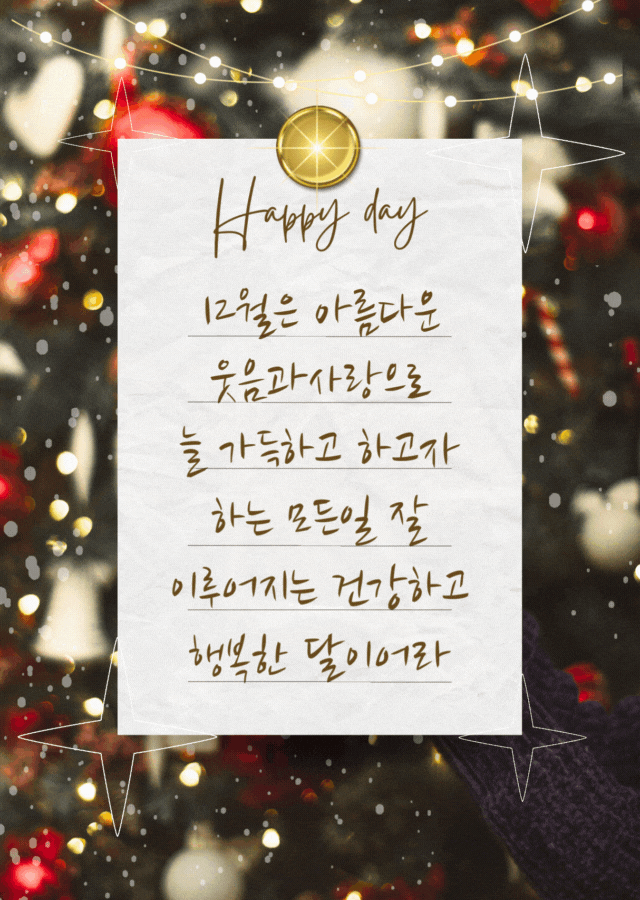 Happy day
12월은 아름다운
웃음과사랑으로
늘 가득하고 하고자
하는 모든일 잘
이루어지는 건강하고
행복한 달이어라